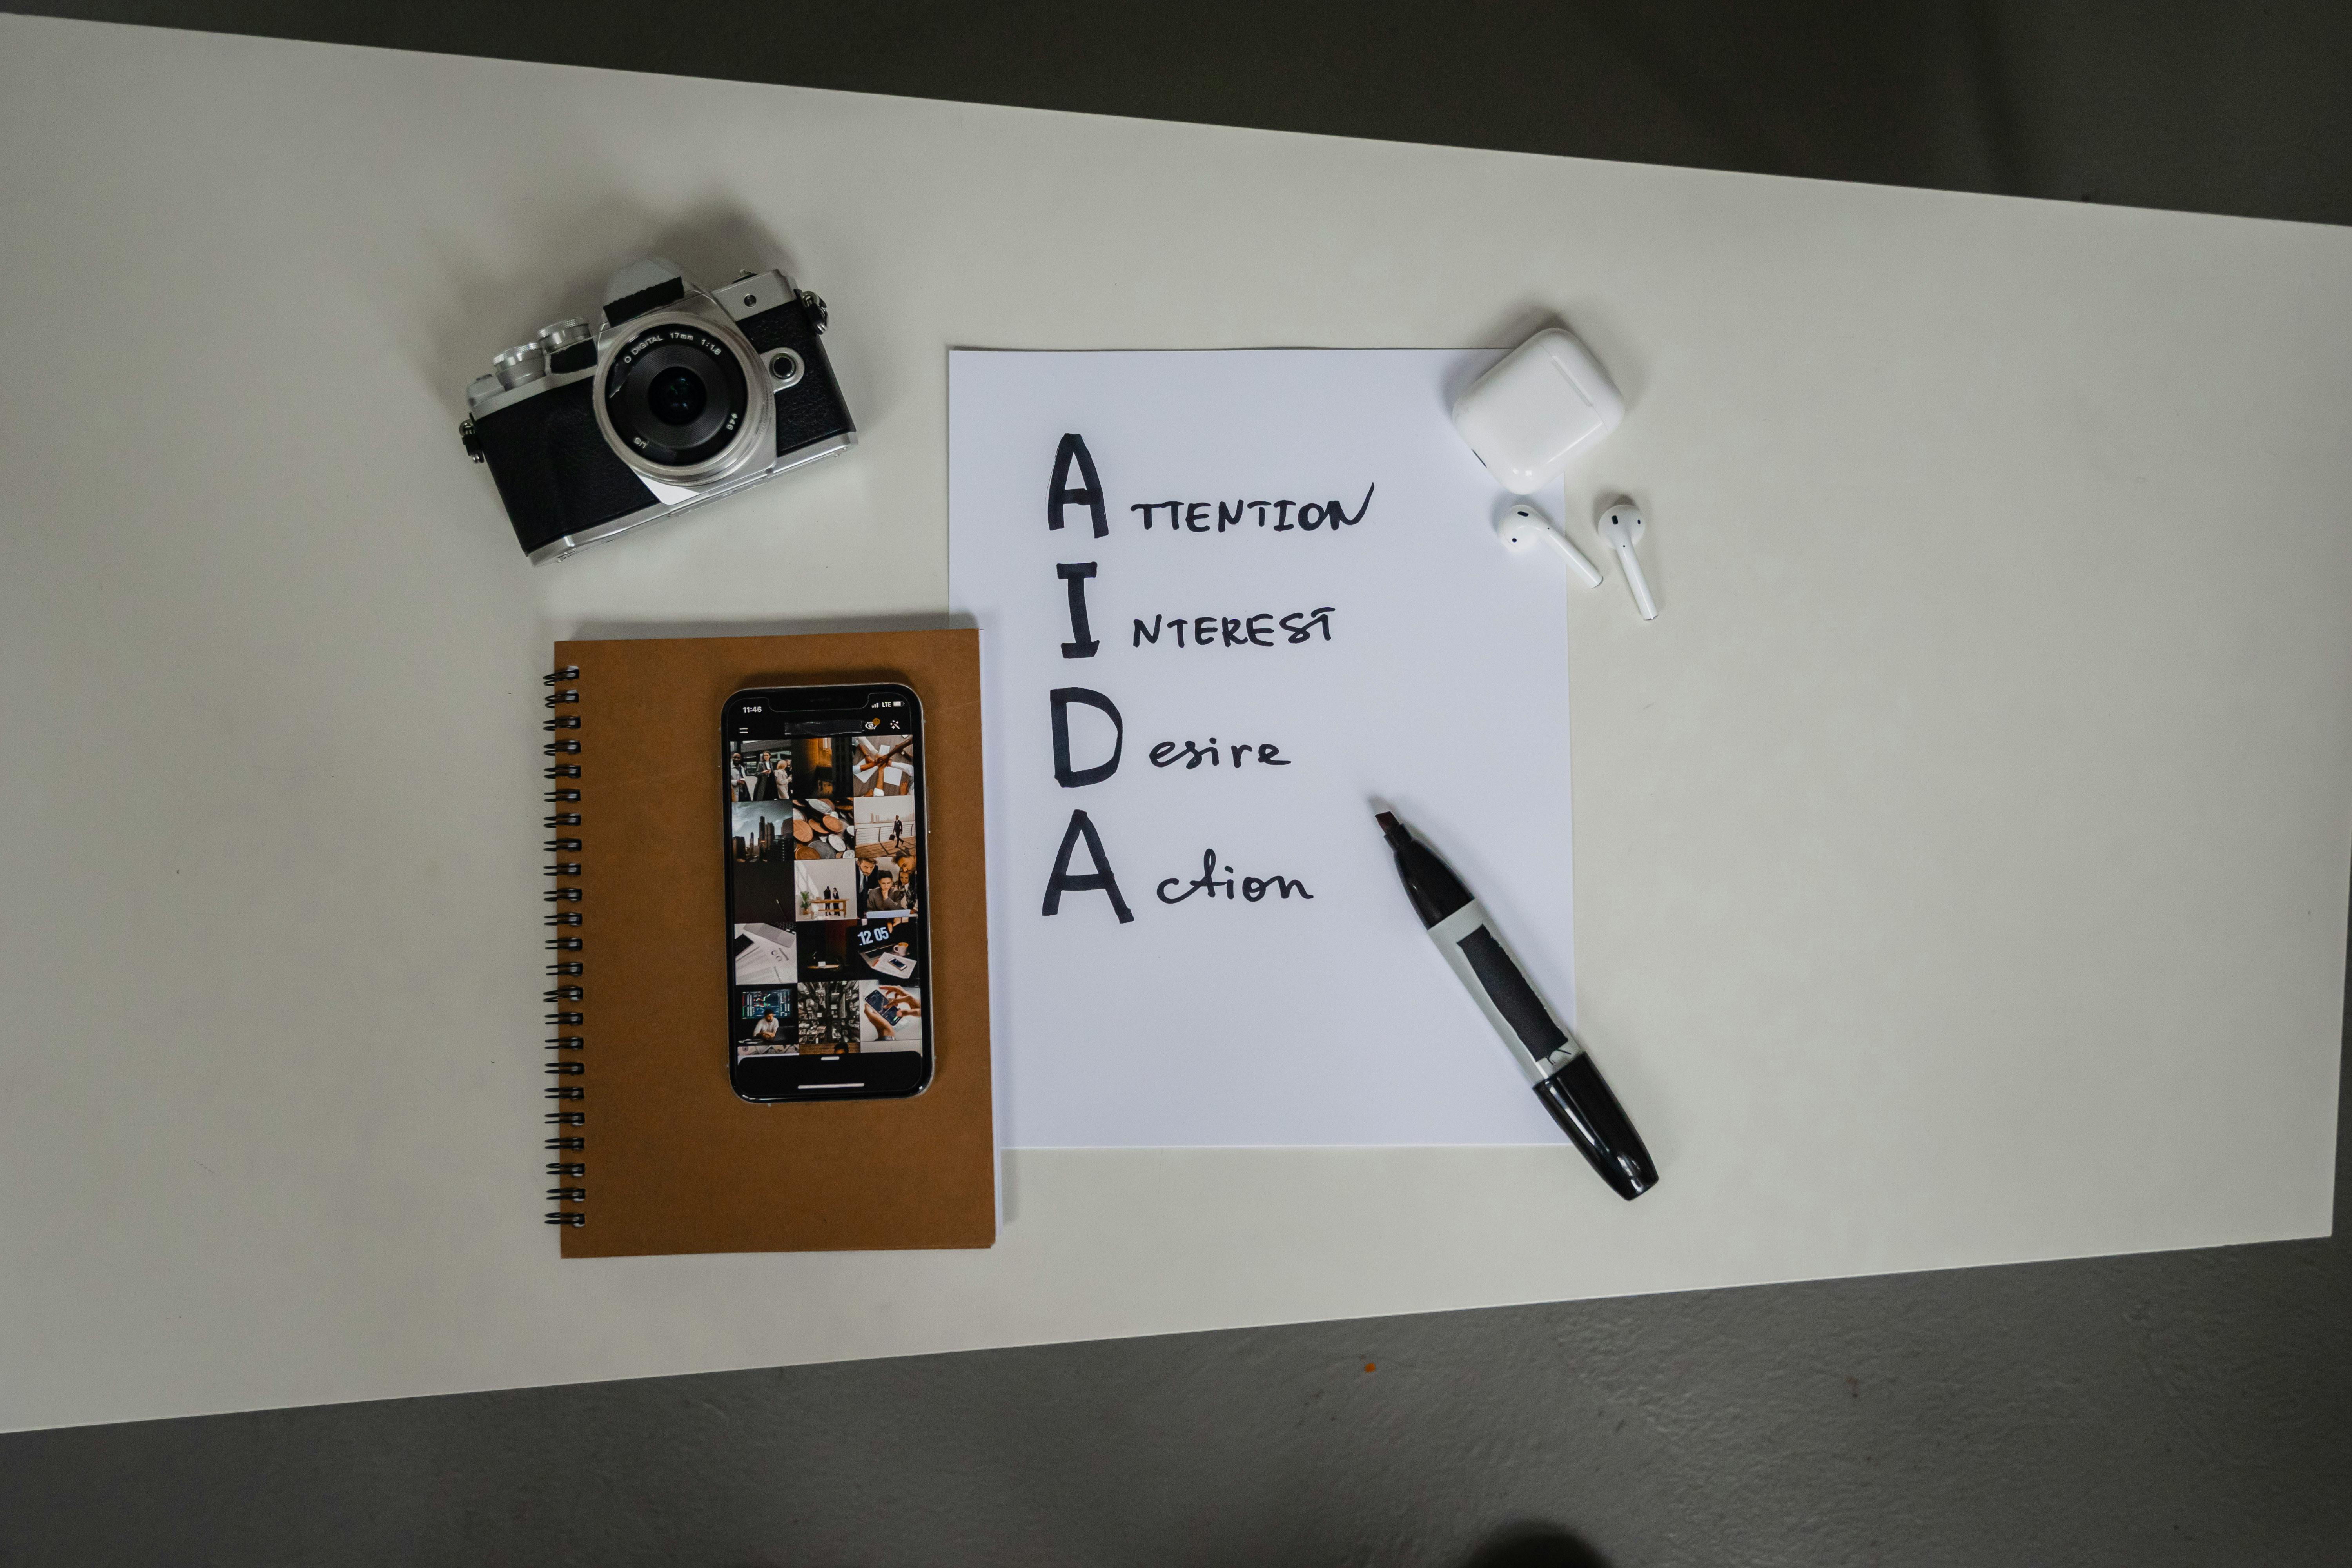 O DIGITAL 17mm 1:1.8
ø46
ATTENTION
INTEREST
Desire
Action
11:46
LTE
12 05